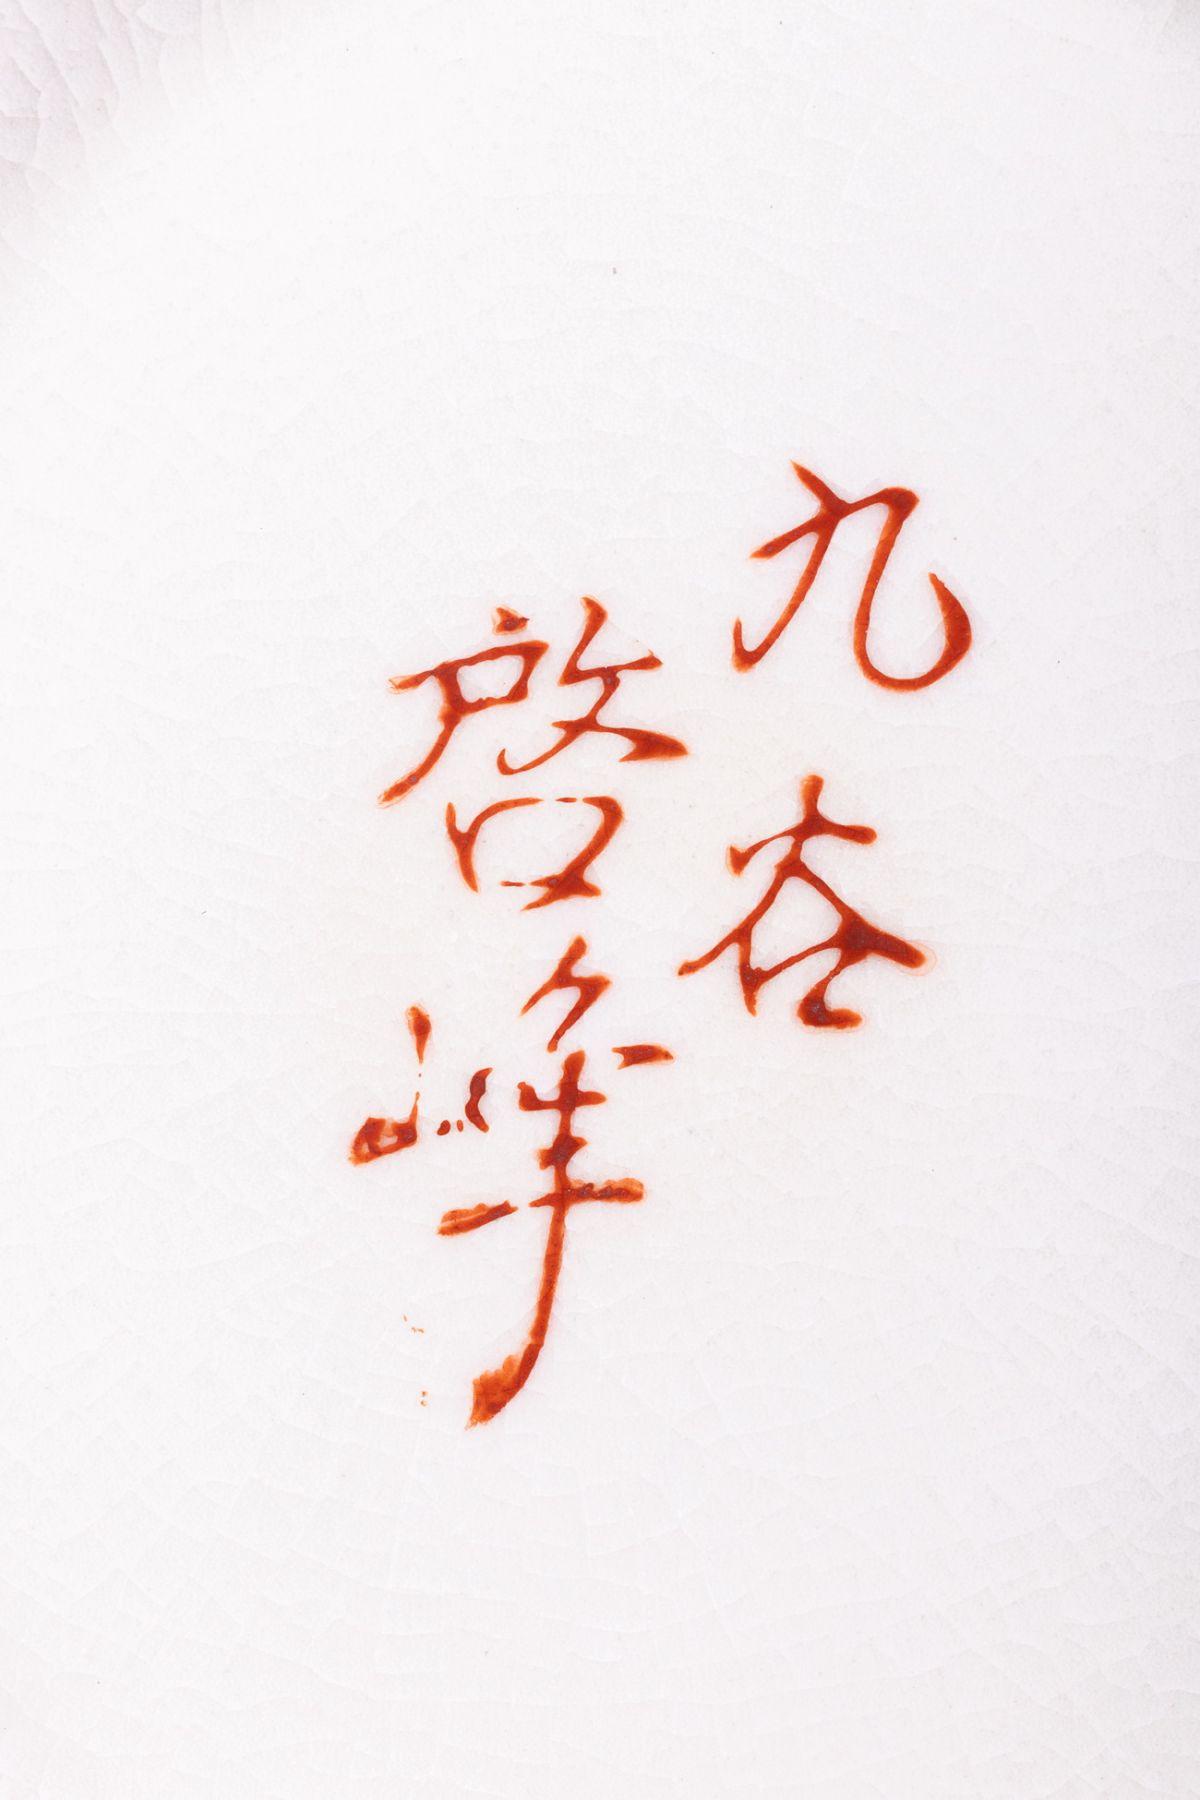 九谷
啓峰